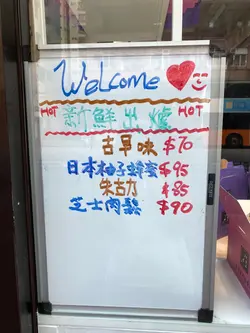 Welcome
HOT 新鮮出爐 HOT
古早味 $70
日本柚子蜂蜜 $95
朱古力 $85
芝士肉鬆 $90